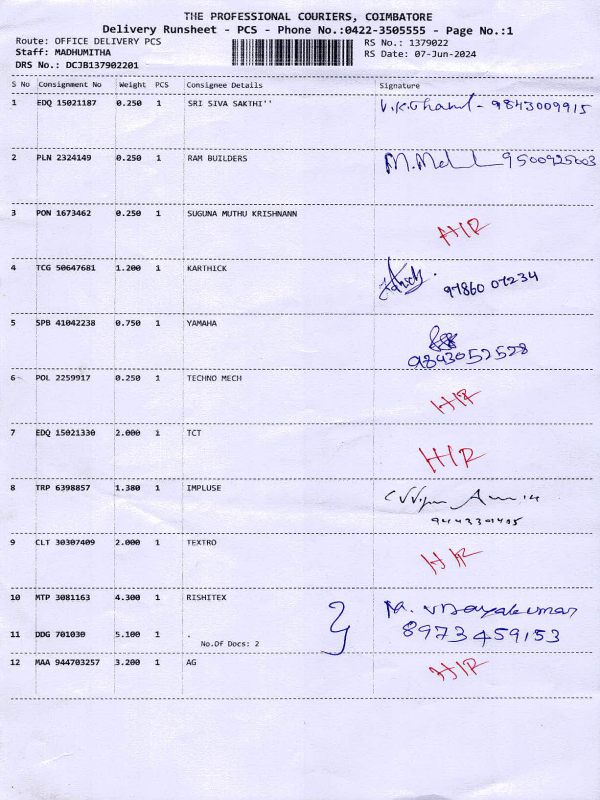 THE PROFESSIONAL COURIERS, COIMBATORE
Delivery Runsheet - PCS - Phone No.:0422-3505555 - Page No.:1
Route: OFFICE DELIVERY PCS RS No.: 1379022
Staff: MADHUMITHA RS Date: 07-Jun-2024
DRS No.: DCJB137902201
S No Consignment No Weight PCS Consignee Details Signature
1 EDQ 15021187 0.250 1 SRI SIVA SAKTHI'' 9843009915
2 PLN 2324149 0.250 1 RAM BUILDERS 9500925003
3 PON 1673462 0.250 1 SUGUNA MUTHU KRISHNANN HIR
4 TCG 50647681 1.200 1 KARTHICK 97860 07234
5 SPB 41042238 0.750 1 YAMAHA
9843052528
6 POL 2259917 0.250 1 TECHNO MECH HIR
7 EDQ 15021330 2.000 1 TCT HIR
8 TRP 6398857 1.380 1 IMPLUSE
9 CLT 30307409 2.000 1 TEXTRO HIR
10 MTP 3081163 4.300 1 RISHITEX M. Vijayakumar
11 DDG 701030 5.100 1 . 8973459153
No.Of Docs: 2
12 MAA 944703257 3.200 1 AG HIR